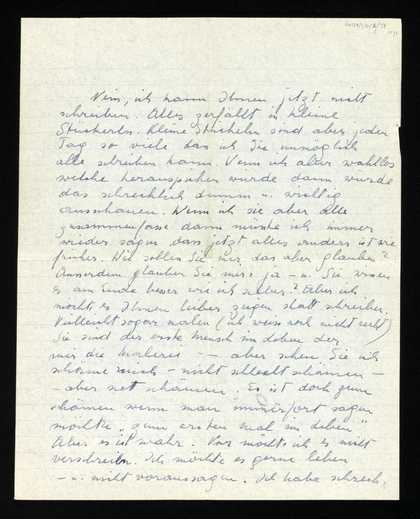 Nein, ich kann Ihnen jetzt nicht
schreiben. Alles zerfällt in kleine
Stückerln. Kleine Stückeln sind aber jeden
Tag so viele das ich Sie unmöglich
alle schreiben kann. Wenn ich aber wahllos
welche herauspicken würde dann würde
das schrecklich dumm u.
ausschauen. Wenn ich sie aber alle
zusammenfasse dann müsste ich immer
wieder sagen dass jetzt alles anders ist wie
früher. Wie sollen Sie mir das aber glauben?
Ausserdem glauben Sie mir's ja – u. Sie wissen
es am Ende besser wie ich selber? Aber ich
möcht es Ihnen lieber zeigen statt schreiben.
Vielleicht sogar malen (ich weiss noch nicht recht)
Sie sind der erste Mensch im Leben der
mir die – – aber sehen Sie ich
schäme mich – nicht schlecht schämen –
– aber nett schämen. Es ist doch zum
schämen wenn man immerfort sagen
möchte „zum ersten Mal im Leben"
Aber es ist wahr. Nur möcht ich es nicht
verschreiben. Ich möchte es gerne leben
– u. nicht voraussagen. Ich habe schreck-